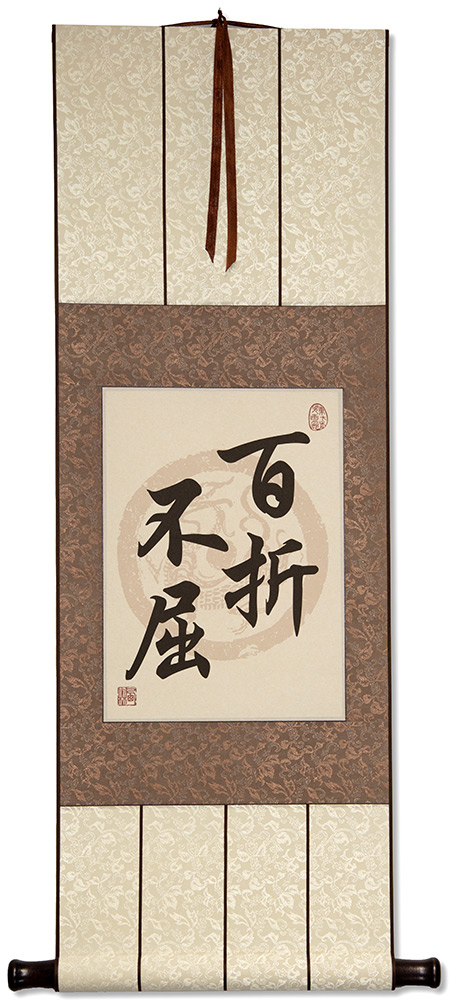 百折
不屈